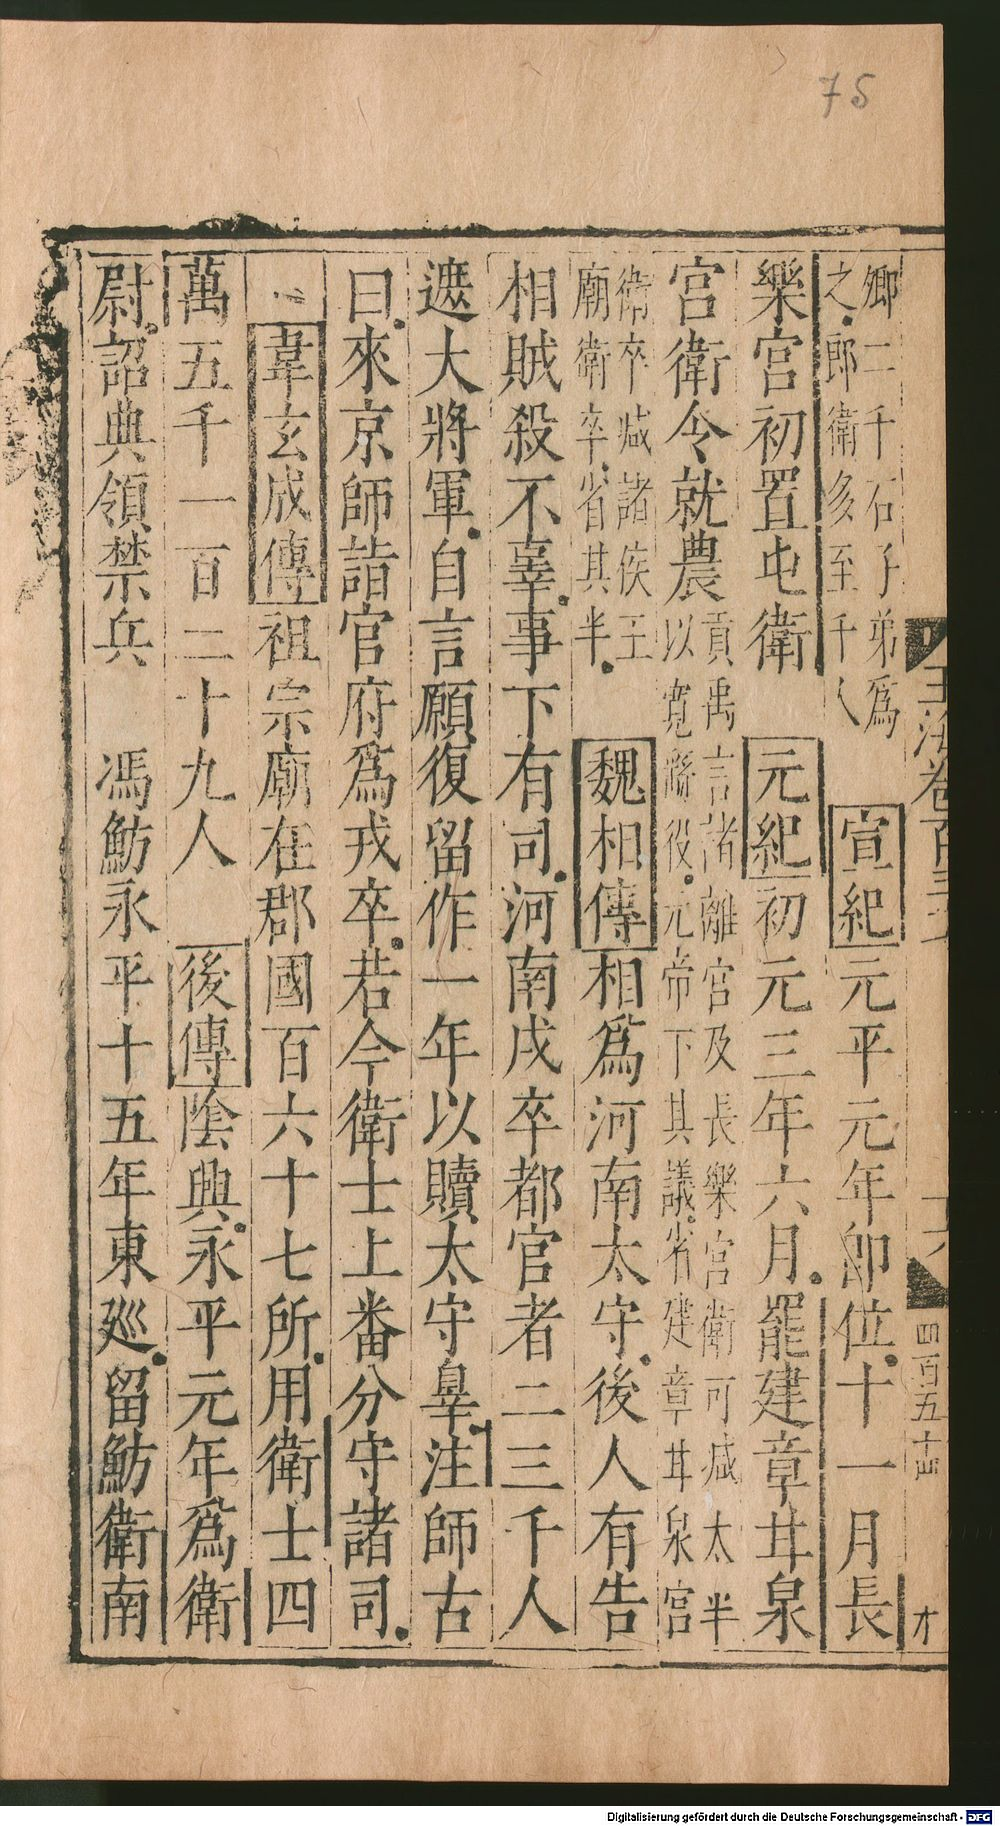 75
玉海卷百三十
四百五十四
才
卿二千石子弟爲
之郎衛多至千人
宣紀元平元年卽位十一月長
樂宮初置屯衛 元紀初元三年六月罷建章甘泉
宮衛令就農貢禹言諸離宮及長樂宮衛可减太半
以寬繇役元帝下其議省建章甘泉宮
衛卒减諸侯王
廟衛卒省其半
魏相傳相爲河南太守後人有告
相賊殺不辜事下有司河南戍卒都官者二三千人
遮大將軍自言願復留作一年以贖太守辠注師古
曰來京師詣官府爲戎卒若今衛士上番分守諸司
韋玄成傳祖宗廟在郡國百六十七所用衛士四
萬五千一百二十九人 後傳陰興永平元年爲衛
尉詔典領禁兵 馮魴永平十五年東廵留魴衛南
Digitalisierung gefördert durch die Deutsche Forschungsgemeinschaft - DFG